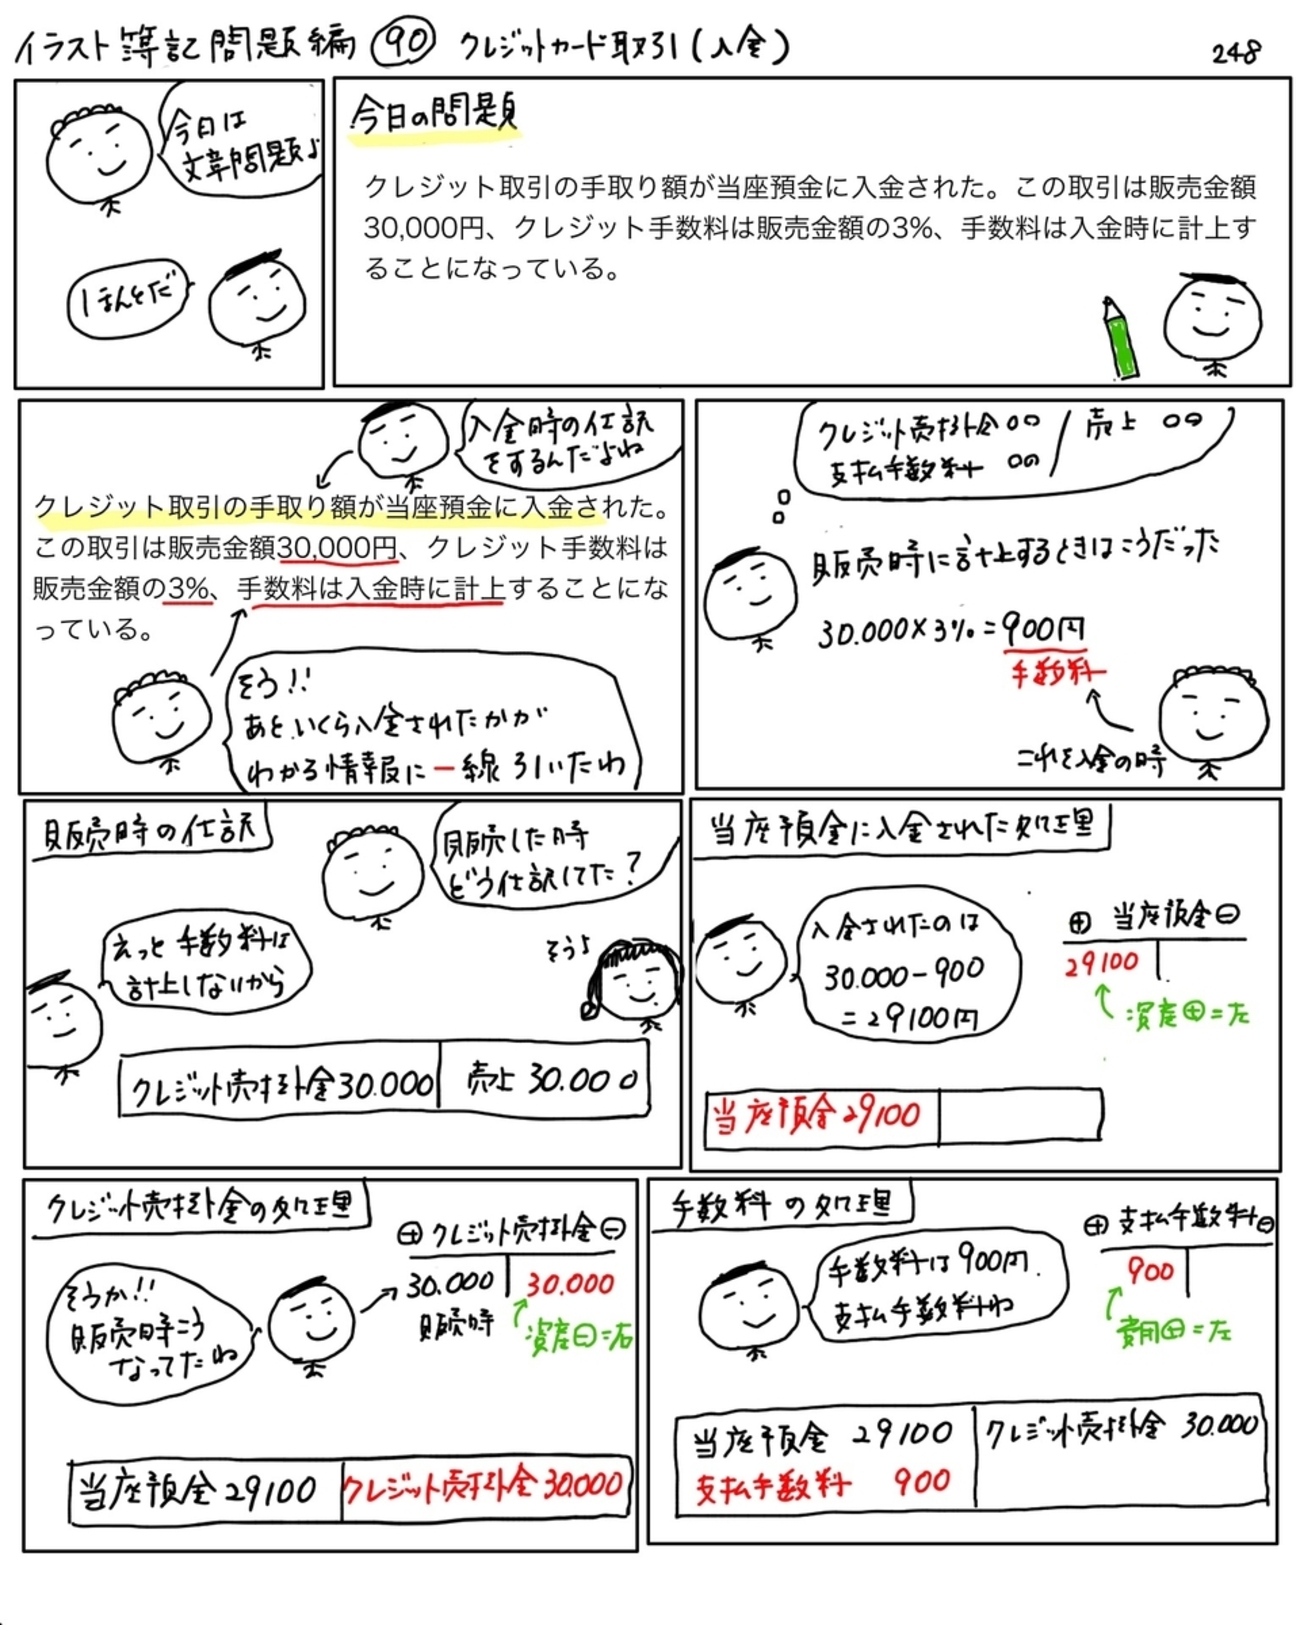 イラスト簿記問題編 90 クレジットカード取引(入金)
248
今日は
文章問題よ
ほんとだ
今日の問題
クレジット取引の手取り額が当座預金に入金された。この取引は販売金額
30,000円、クレジット手数料は販売金額の3%、手数料は入金時に計上す
ることになっている。
入金時の仕訳
をするんだよね
クレジット取引の手取り額が当座預金に入金された。
この取引は販売金額30,000円、クレジット手数料は
販売金額の3%、手数料は入金時に計上することにな
っている。
そう!!
あと、いくら入金されたかが
わかる情報に一線引いたわ
クレジット売掛金 〇〇 / 売上 〇〇
支払手数料 〇〇
販売時に計上するときはこうだった
30.000×3%=900円
手数料
これを入金の時
販売時の仕訳
販売した時
どう仕訳してた?
えっと手数料は
計上しないから
そうよ
クレジット売掛金30.000 売上 30.000
当座預金に入金された処理
入金されたのは
30.000-900
=29100円
⊕ 当座預金 ⊖
29100
資産⊕=左
当座預金 29100
クレジット売掛金の処理
⊕ クレジット売掛金 ⊖
30.000 30.000
販売時
資産⊖=右
そうか!!
販売時こう
なってたね
当座預金 29100 クレジット売掛金 30.000
手数料の処理
⊕ 支払手数料 ⊖
900
費用⊕=左
手数料は900円.
支払手数料ね
当座預金 29100 クレジット売掛金 30.000
支払手数料 900